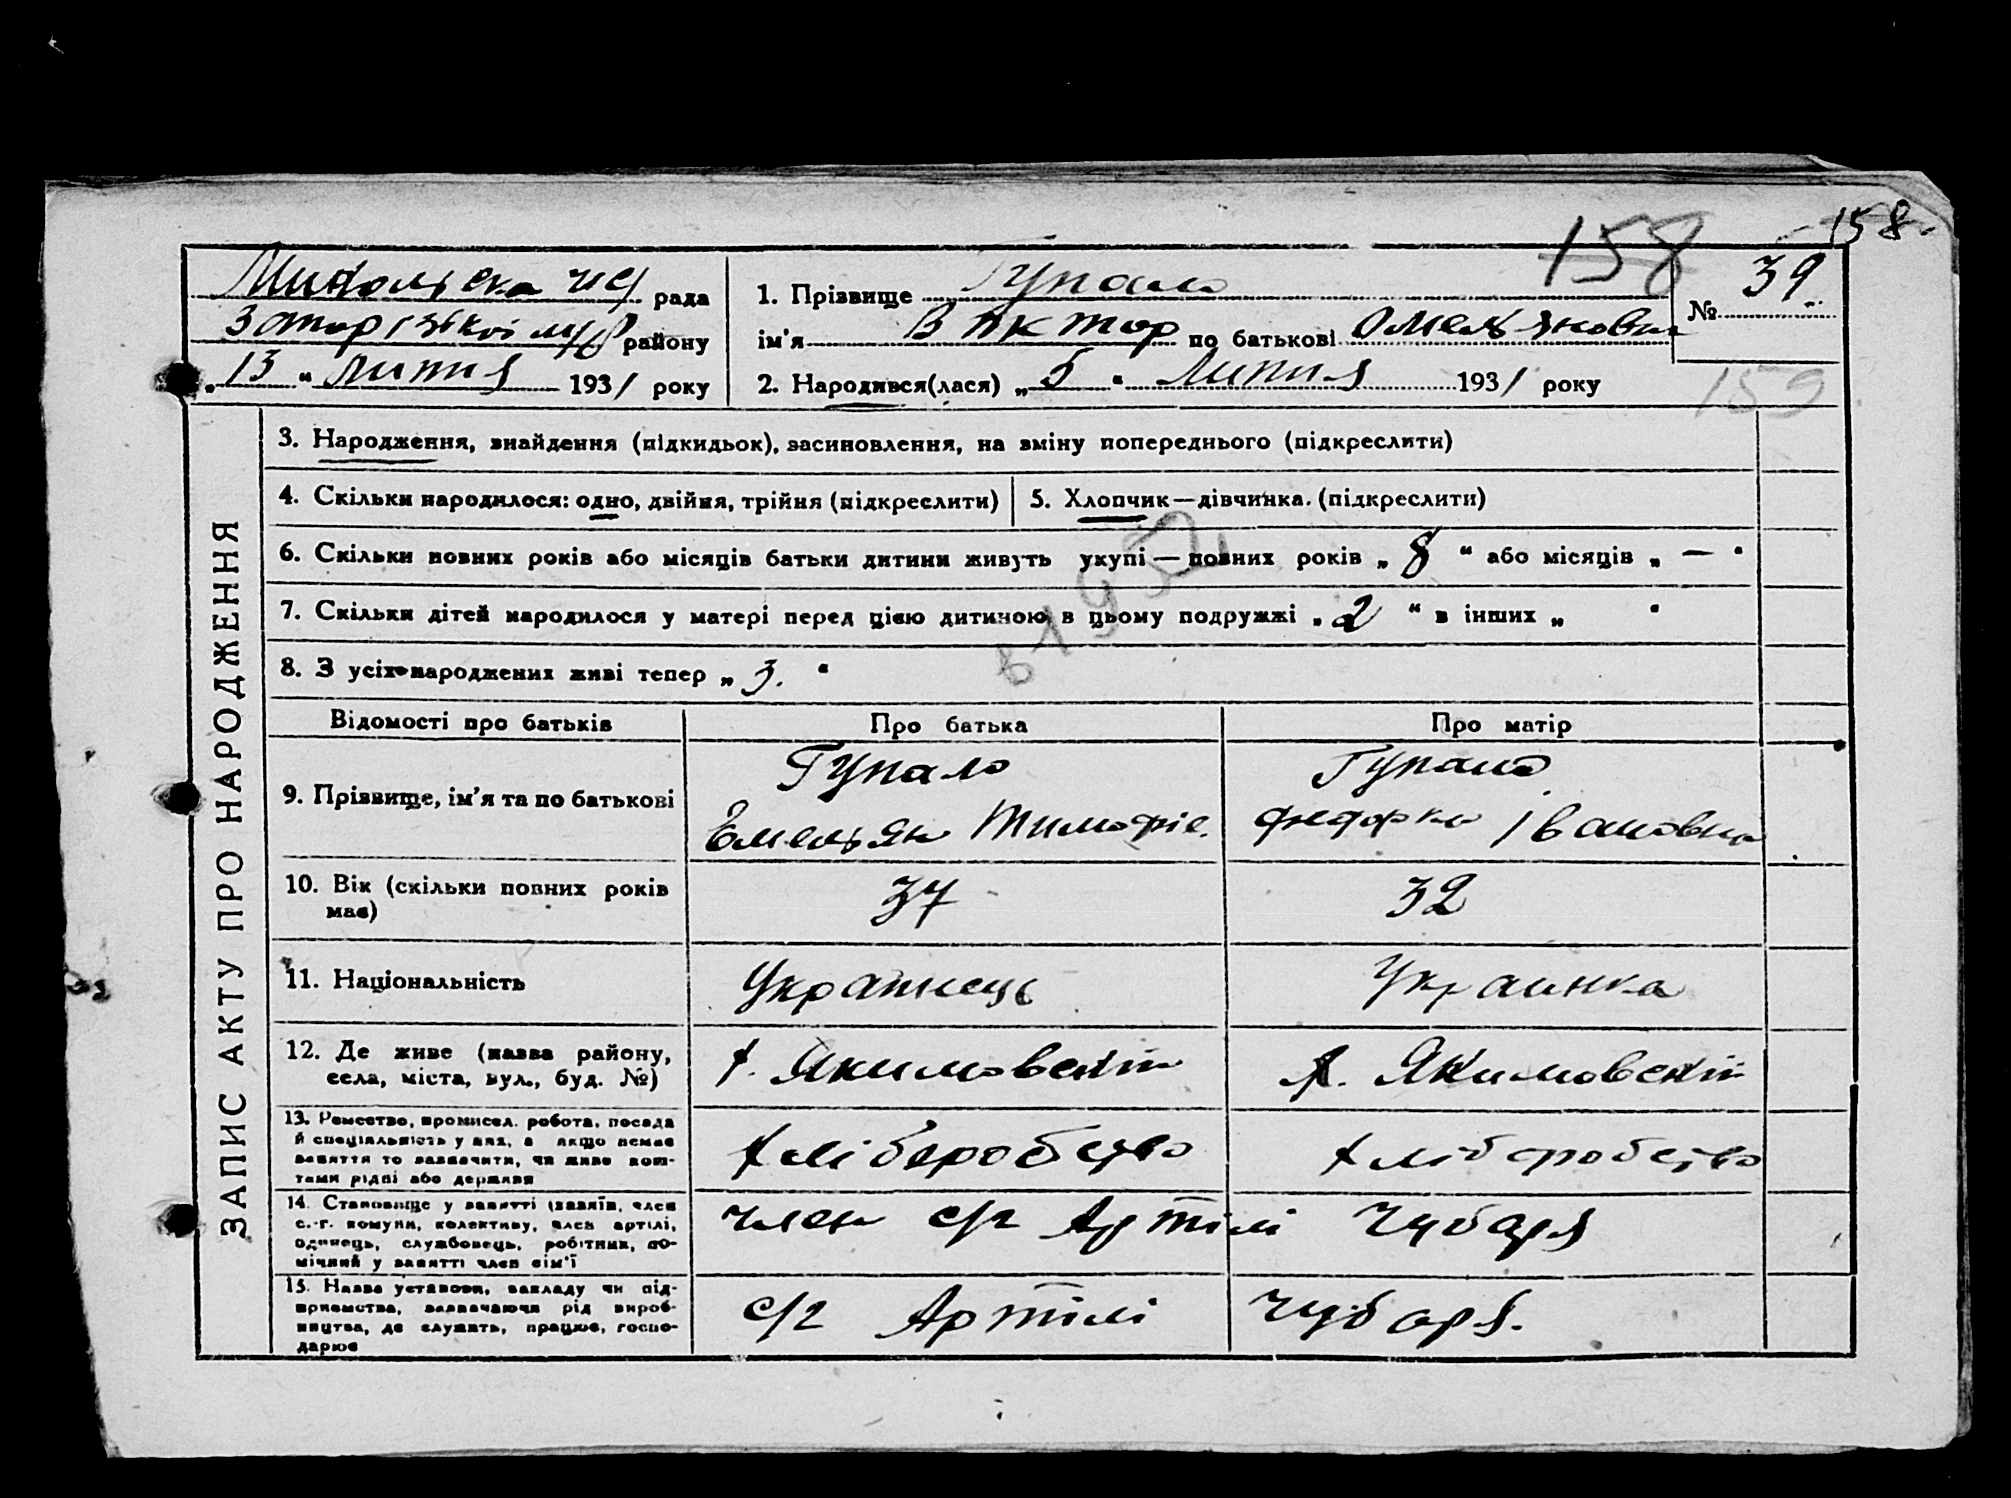 158
158
39
Микольська рада
Запорізької району
„13" липня 1931 року
1. Прізвище Гупало
№
ім'я Віктор по батькові Омельянович
2. Народився(лася) „5" Липня 1931 року
159
ЗАПИС АКТУ ПРО НАРОДЖЕННЯ
3. Народження, знайдення (підкидьок), засиновлення, на зміну попереднього (підкреслити)
4. Скільки народилося: одно, двійня, трійня (підкреслити)
5. Хлопчик—дівчинка. (підкреслити)
6. Скільки повних років або місяців батьки дитини живуть укупі — повних років „8" або місяців „—"
7. Скільки дітей народилося у матері перед цією дитиною в цьому подружжі „2" в інших „ "
8. З усіх народжених живі тепер „3."
Відомості про батьків
Про батька
Про матір
9. Прізвище, ім'я та по батькові
Гупало
Емельян Тимофіе.
Гупало
Івановна
10. Вік (скільки повних років
має)
37
32
11. Національність
Украинець
Украинка
12. Де живе (назва району,
села, міста, вул., буд. №)
х. Якимовский
х. Якимовский
13. Ремество, промисел, робота, посада
й спеціяльність у них, а якщо немає
заняття то зазначити, чи живе кош-
тами рідні або держави
хліборобство
хліборобство
14. Становище у занятті (хазяїв, член
с.-г. комуни, колективу, член артілі,
одинець, службовець, робітник, по-
мічний у занятті член сім'ї
член с/г Артілі Чубаря
15. Назва установи, закладу чи під-
приємства, зазначаючи рід вироб-
ництва, де служить, працює, госпо-
дарює
с/г Артілі Чубаря.